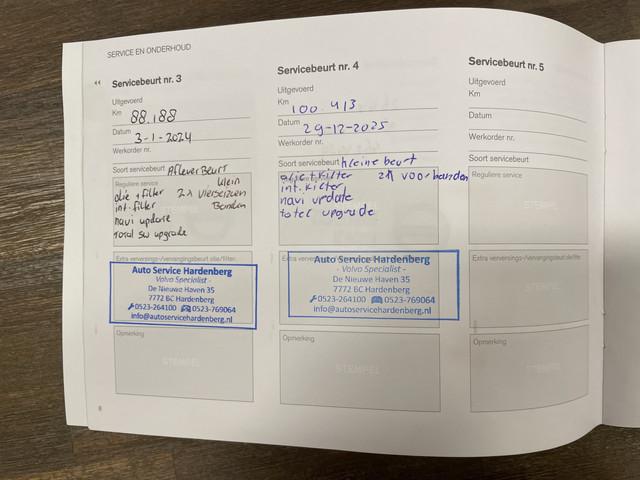 SERVICE EN ONDERHOUD
Servicebeurt nr. 3
Uitgevoerd
Km 88.188
Datum 3-1-2024
Werkorder nr.
Soort servicebeurt Aflever Beurt
Klein
Reguliere service
olie + filter 2x Vierseizoen
int. filter Banden
navi update
Total sw upgrade
Extra verversings-/vervangingsbeurt olie/filter.
Auto Service Hardenberg
- Volvo Specialist -
De Nieuwe Haven 35
7772 BC Hardenberg
0523-264100 0523-769064
info@autoservicehardenberg.nl
Opmerking
STEMPEL
8
Servicebeurt nr. 4
Uitgevoerd
Km 100.413
Datum 29-12-2025
Werkorder nr.
Soort servicebeurt kleine beurt
Reguliere service
olie + filter 2x voorbanden
int. filter
navi update
totel upgrade
Auto Service Hardenberg
- Volvo Specialist -
De Nieuwe Haven 35
7772 BC Hardenberg
0523-264100 0523-769064
info@autoservicehardenberg.nl
Opmerking
STEMPEL
Servicebeurt nr. 5
Uitgevoerd
Km
Datum
Werkorder nr.
Soort servicebeurt
Reguliere service
STEMPEL
Extra verversings-/vervangingsbeurt olie/filter.
STEMPEL
Opmerking
STEMPEL